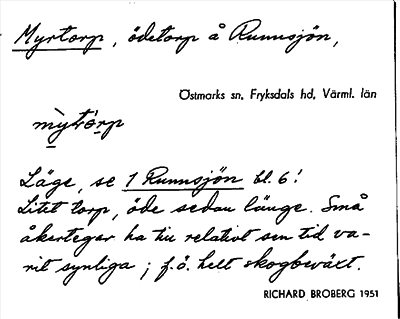 Myrtorp, ödetorp å Runnsjön,
Östmarks sn, Fryksdals hd, Värml. län
mỳtórp
Läge, se 1 Runnsjön bl. 6!
Litet torp, öde sedan länge. Små
åkertegar ha till relativt sen tid va-
rit synliga; f.ö. helt skogbeväxt.
RICHARD BROBERG 1951